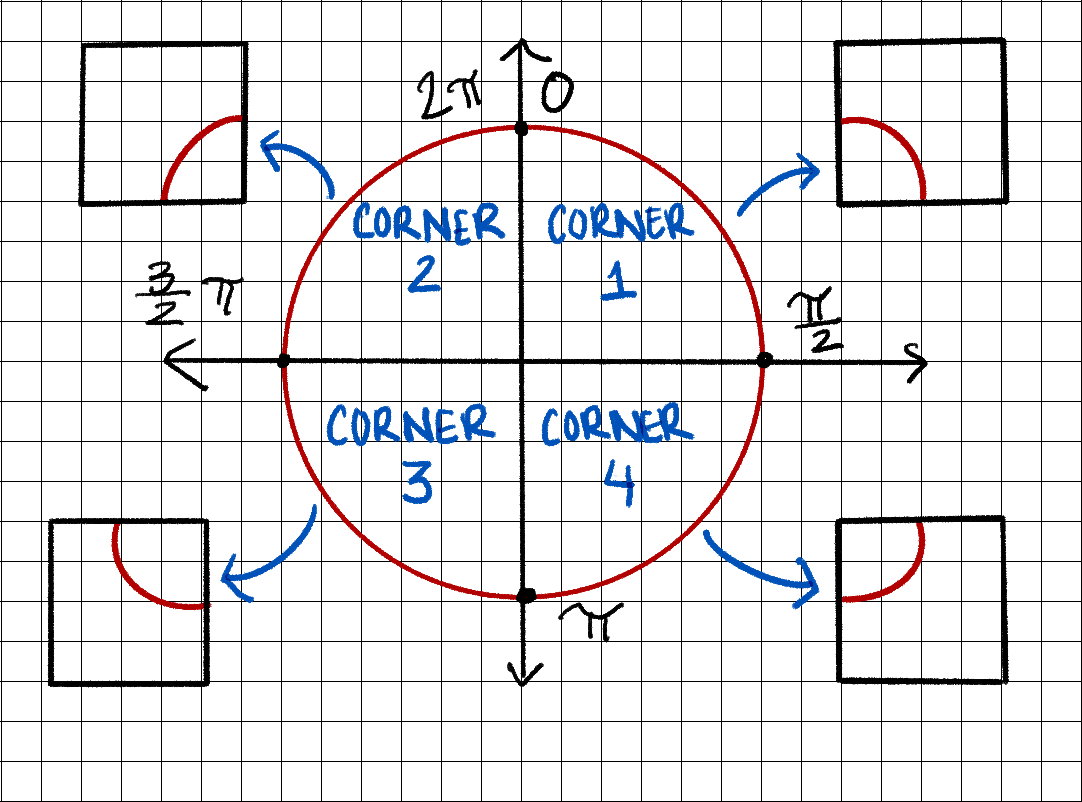 2π 0
CORNER
2
CORNER
1
3/2 π
π/2
CORNER
3
CORNER
4
π